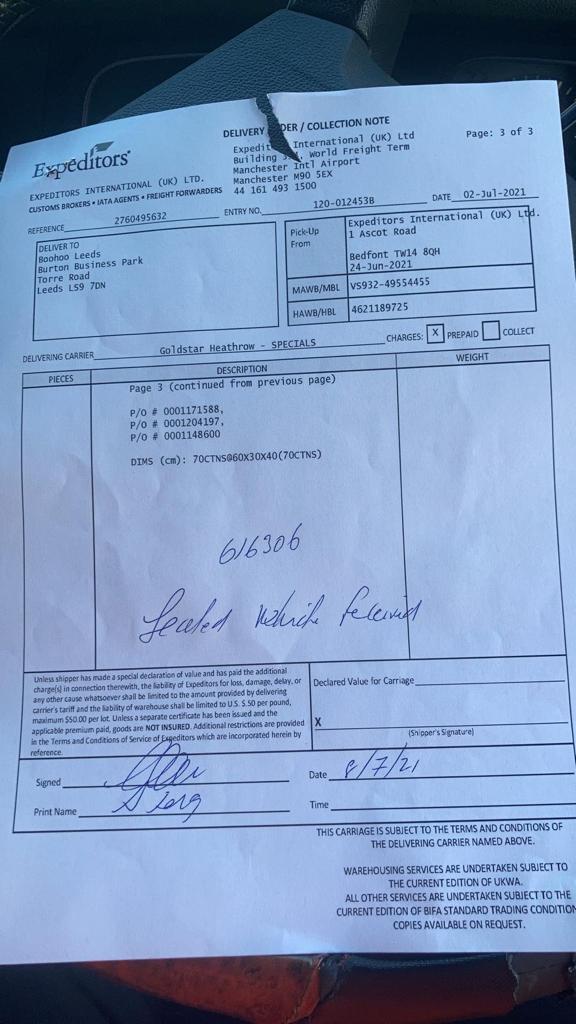 Expeditors
DELIVERY DER / COLLECTION NOTE
Page: 3 of 3
Expedit International (UK) Ltd
Building 3 , World Freight Term
Manchester Intl Airport
Manchester M90 5EX
44 161 493 1500
EXPEDITORS INTERNATIONAL (UK) LTD.
CUSTOMS BROKERS • IATA AGENTS • FREIGHT FORWARDERS
REFERENCE 2760495632
ENTRY NO. 120-012453B
DATE 02-Jul-2021
DELIVER TO
Boohoo Leeds
Burton Business Park
Torre Road
Leeds LS9 7DN
Pick-Up
From
Expeditors International (UK) Ltd.
1 Ascot Road
Bedfont TW14 8QH
24-Jun-2021
MAWB/MBL VS932-49554455
HAWB/HBL 4621189725
DELIVERING CARRIER Goldstar Heathrow - SPECIALS
CHARGES: X PREPAID COLLECT
PIECES DESCRIPTION WEIGHT
Page 3 (continued from previous page)
P/O # 0001171588,
P/O # 0001204197,
P/O # 0001148600
DIMS (cm): 70CTNS@60X30X40(70CTNS)
616306
Sealed
Unless shipper has made a special declaration of value and has paid the additional
charge(s) in connection therewith, the liability of Expeditors for loss, damage, delay, or
any other cause whatsoever shall be limited to the amount provided by delivering
carrier's tariff and the liability of warehouse shall be limited to U.S. $.50 per pound,
maximum $50.00 per lot. Unless a separate certificate has been issued and the
applicable premium paid, goods are NOT INSURED. Additional restrictions are provided
in the Terms and Conditions of Service of Expeditors which are incorporated herein by
reference.
Declared Value for Carriage
X
(Shipper's Signature)
Signed
Date 8/7/21
Print Name
Time
THIS CARRIAGE IS SUBJECT TO THE TERMS AND CONDITIONS OF
THE DELIVERING CARRIER NAMED ABOVE.
WAREHOUSING SERVICES ARE UNDERTAKEN SUBJECT TO
THE CURRENT EDITION OF UKWA.
ALL OTHER SERVICES ARE UNDERTAKEN SUBJECT TO THE
CURRENT EDITION OF BIFA STANDARD TRADING CONDITION
COPIES AVAILABLE ON REQUEST.